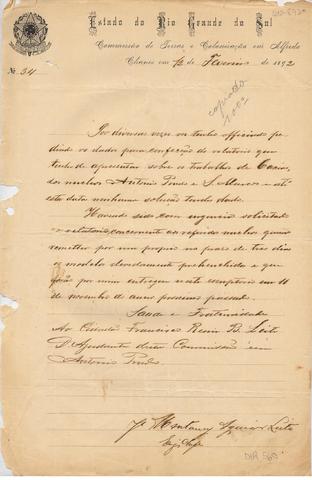 Estado do Rio Grande do Sul
Commissão de Terras e Colonisação em Alfredo
Chaves em 12 de Fevereiro de 1892
Nº 34
copiado
Por diversas vezes vos tenho officiado pe
dindo os dados para confecção do relatorio que
tenho de apresentar sobre os trabalhos de Caxias,
dos nucleos Antonio Prado e S. Marcos e até
esta data nenhuma solução tendes dado.
Havendo sido com urgencia solicitado
o relatorio concernente ao referido nucleo queira
remetter por um proprio no praso de tres dias
os modelos devidamente prehenchidos e que
forão por mim entregues neste escriptorio em 11
de novembro do anno proximo passado.
Saude e Fraternidade
Ao Cidadão Francisco B. Leite
D. Ajudante desta Commissão em
Antonio Prado.
J. Montaury Aguiar Leitão
Engº Chefe